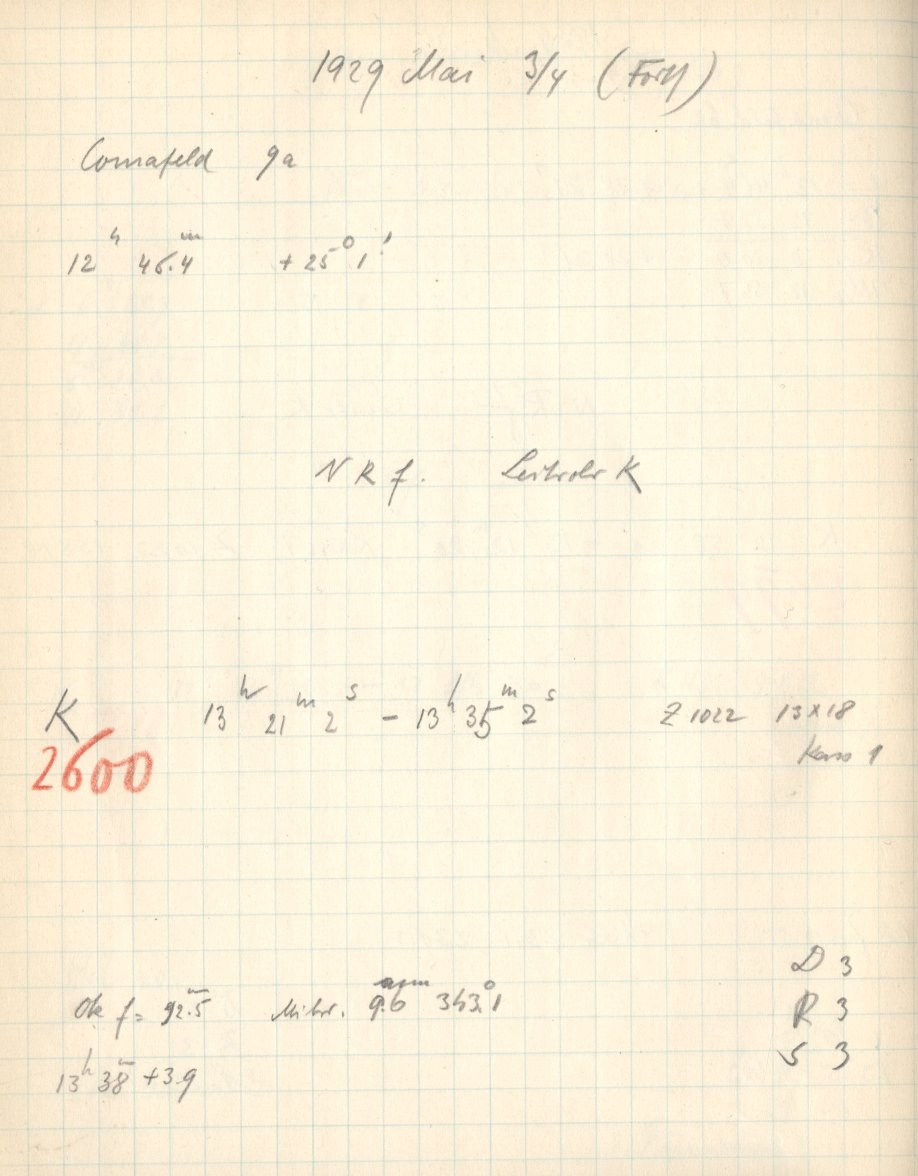 1929 Mai 3/4 (Forts)
Comafeld 9a
12ʰ 46.4ᵐ +25° 1'
N R f. Leitrohr K
K 13ʰ 21ᵐ 2ˢ – 13ʰ 35ᵐ 2ˢ Z 1022 13x18
2600 Kass 1
D 3
Ok f = 92.5 Mikr. 9.6 343.°1 R 3
S 3
13ʰ 38ᵐ +3.9